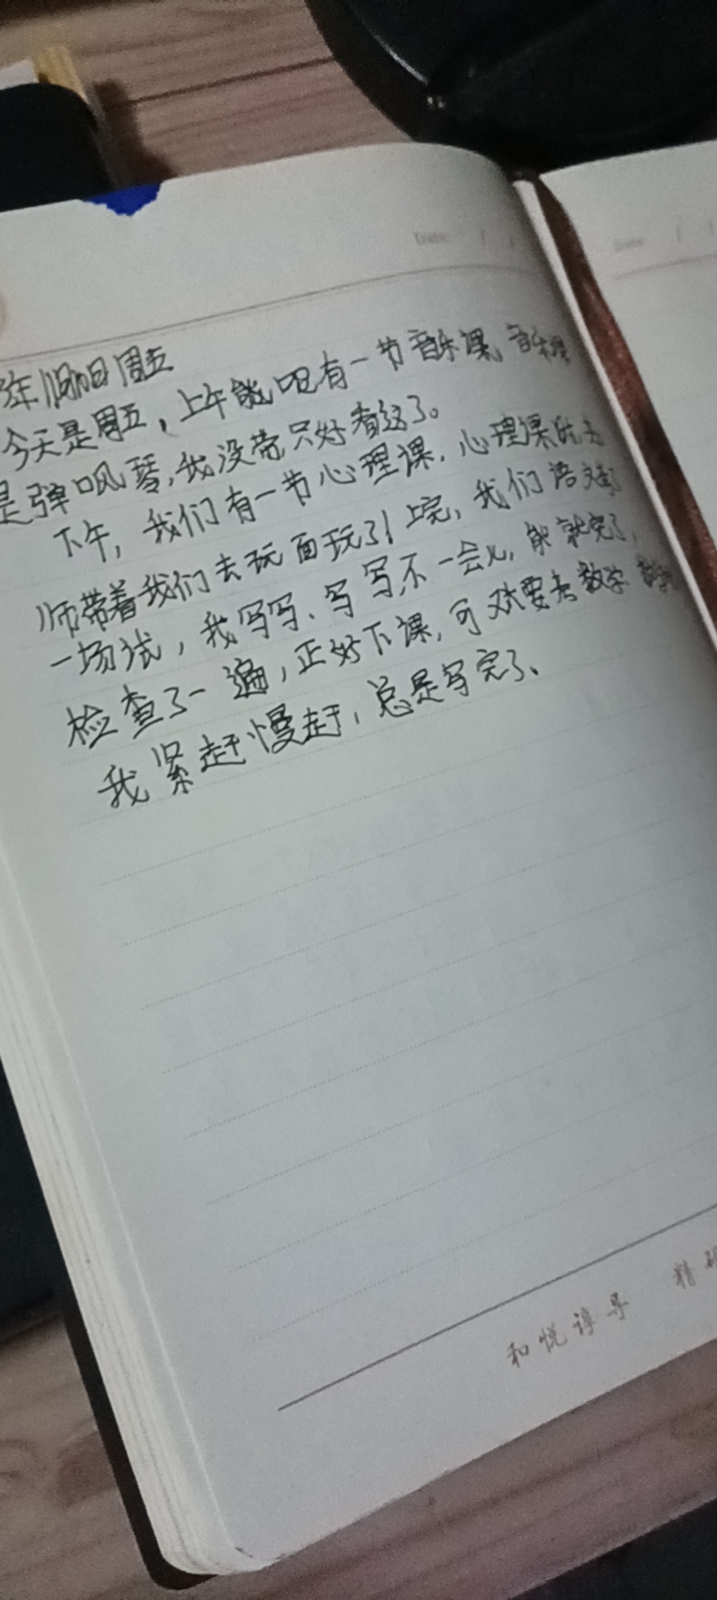 Date: / /
Date: /
年11月10日周五
今天是周五,上午 有一节音乐课,音乐课
是弹口风琴,我没带,只好看这了。
下午,我们有一节心理课,心理课的老
师带着我们去 面玩了!上完,我们语文考了
一场试,我写写、写写,不一会儿, 就完了,
检查了一遍,正好下课,可 要考数学,
我紧赶慢赶,总是写完了、
和悦谆导 精研